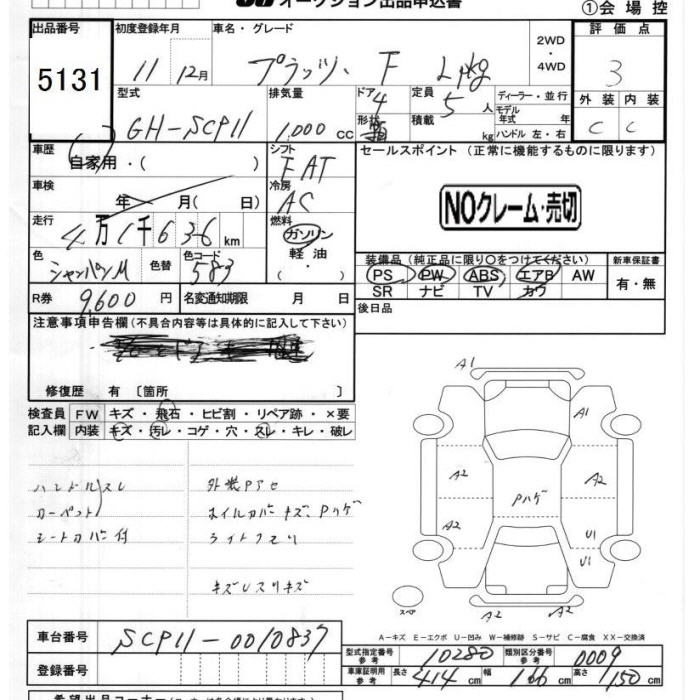 オークション出品申込書
①会場控
出品番号 初度登録年月 車名・グレード 2WD・4WD 評価点
5131 11 12月 プラッツ F Lpkg 3
型式 排気量 ドア 4 定員 5人 ディーラー・並行 外装 内装
GH-SCP11 1,000 cc 形状 積載 kg モデル年式 年 ハンドル 左・右 C C
車歴 自家用・( ) シフト FAT セールスポイント (正常に機能するものに限ります)
車検 年 月( 日) 冷房 AC
NOクレーム・売切
走行 4万1千636km 燃料 ガソリン・軽油・( )
色 シャンパンM 色替 色コード 583
装備品(純正品に限り○をつけてください) 新車保証書
PS PW ABS エアB AW 有・無
SR ナビ TV カワ
R券 9,600円 名変通知期限 月 日
後日品
注意事項申告欄(不具合内容等は具体的に記入して下さい)
修復歴 有 〔箇所 〕
検査員 FW キズ・飛石・ヒビ割・リペア跡・×要
記入欄 内装 キズ・汚レ・コゲ・穴・スレ・キレ・破レ
ハンドルスレ 外装Pアセ
カーペット ホイルカバーキズ、Pハゲ
シートカバー付 ライトクモリ
キズUスリキズ
A1
A1
A2 A2
Pハゲ
A2 U1
U1
スペア A2 A2
A－キズ E－エクボ U－凹み W－補修跡 S－サビ C－腐食 XX－交換済
車台番号 SCP11-0010837
型式指定番号 参考 10280 類別区分番号 参考 0009
登録番号
車庫証明用 参考 長さ 414cm 幅 166cm 高さ 150cm